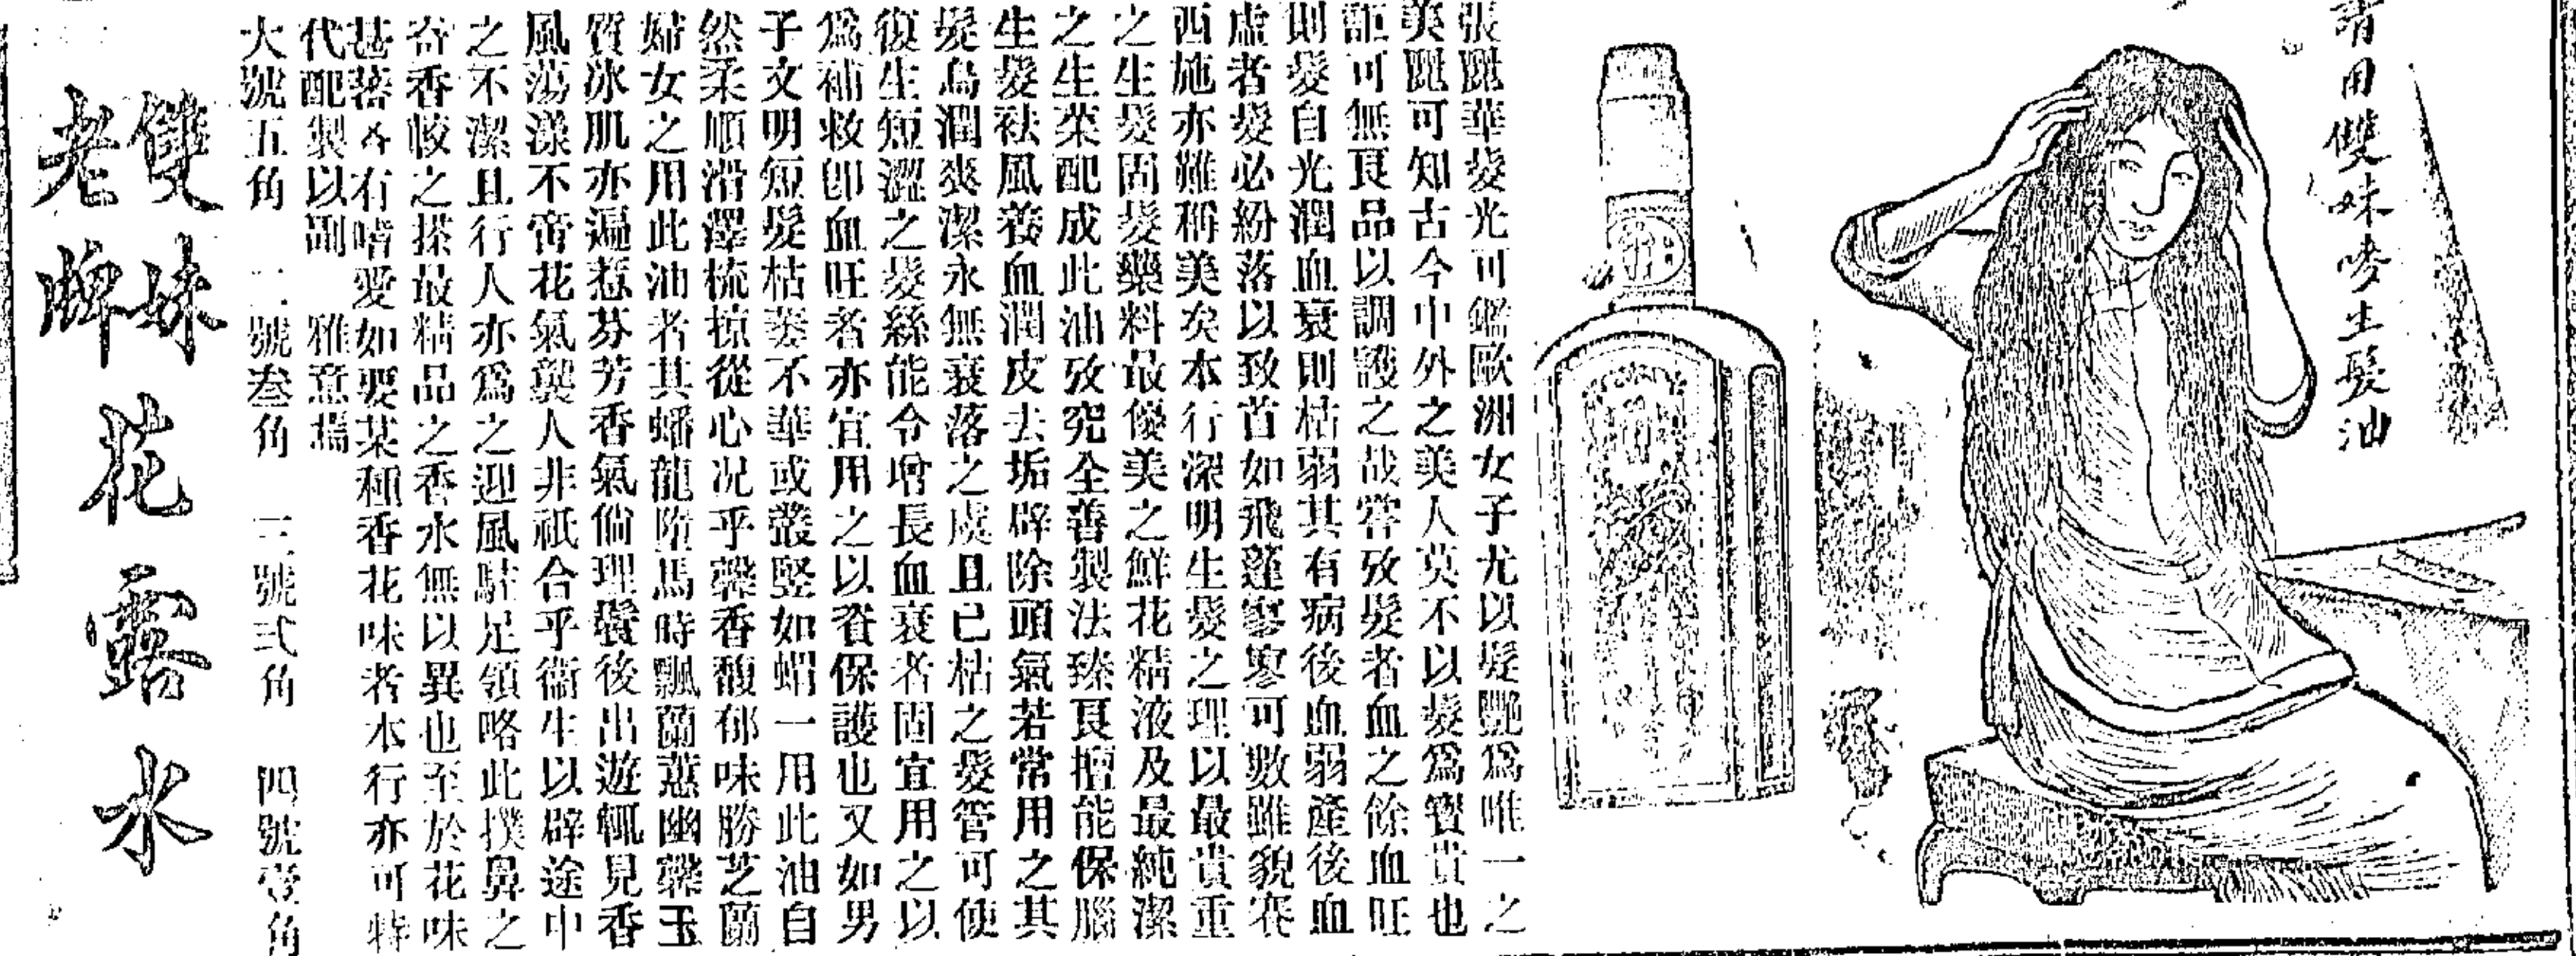 請用雙妹嘜生髮油
張麗華髮光可鑑歐洲女子尤以髮艷爲唯一之
美麗可知古今中外之美人莫不以髮爲寶貴也
詎可無良品以調護之哉嘗攷髮者血之餘血旺
則髮自光潤血衰則枯弱其有病後血弱產後血
虛者髮必紛落以致首如飛蓬寥寥可數雖貌賽
西施亦難稱美矣本行深明生髮之理以最貴重
之生髮固髮藥料最優美之鮮花精液及最純潔
之生菜配成此油攷究全善製法臻良擅能保腦
生髮祛風養血潤皮去垢辟除頭氣若常用之其
髮烏潤爽潔永無衰落之虞且已枯之髮管可使
復生短澀之髮絲能令增長血衰者固宜用之以
爲補救卽血旺者亦宜用之以資保護也又如男
子文明短髮枯萎不華或叢竪如蝟一用此油自
然柔順滑澤梳掠從心况乎馨香馥郁味勝芝蘭
婦女之用此油者其蟠龍墮馬時飄蘭蕙幽馨玉
質冰肌亦遍惹芬芳香氣倘理鬢後出遊輒見香
風蕩漾不啻花氣襲人非祇合乎衞生以辟途中
之不潔且行人亦爲之迎風駐足領略此撲鼻之
奇香較之搽最精品之香水無以異也至於花味
甚蕃各有嗜愛如要某種香花味者本行亦可特
代配製以副 雅意焉
大號五角 二號叁角 三號弍角 四號壹角
雙妹
老牌
花露水